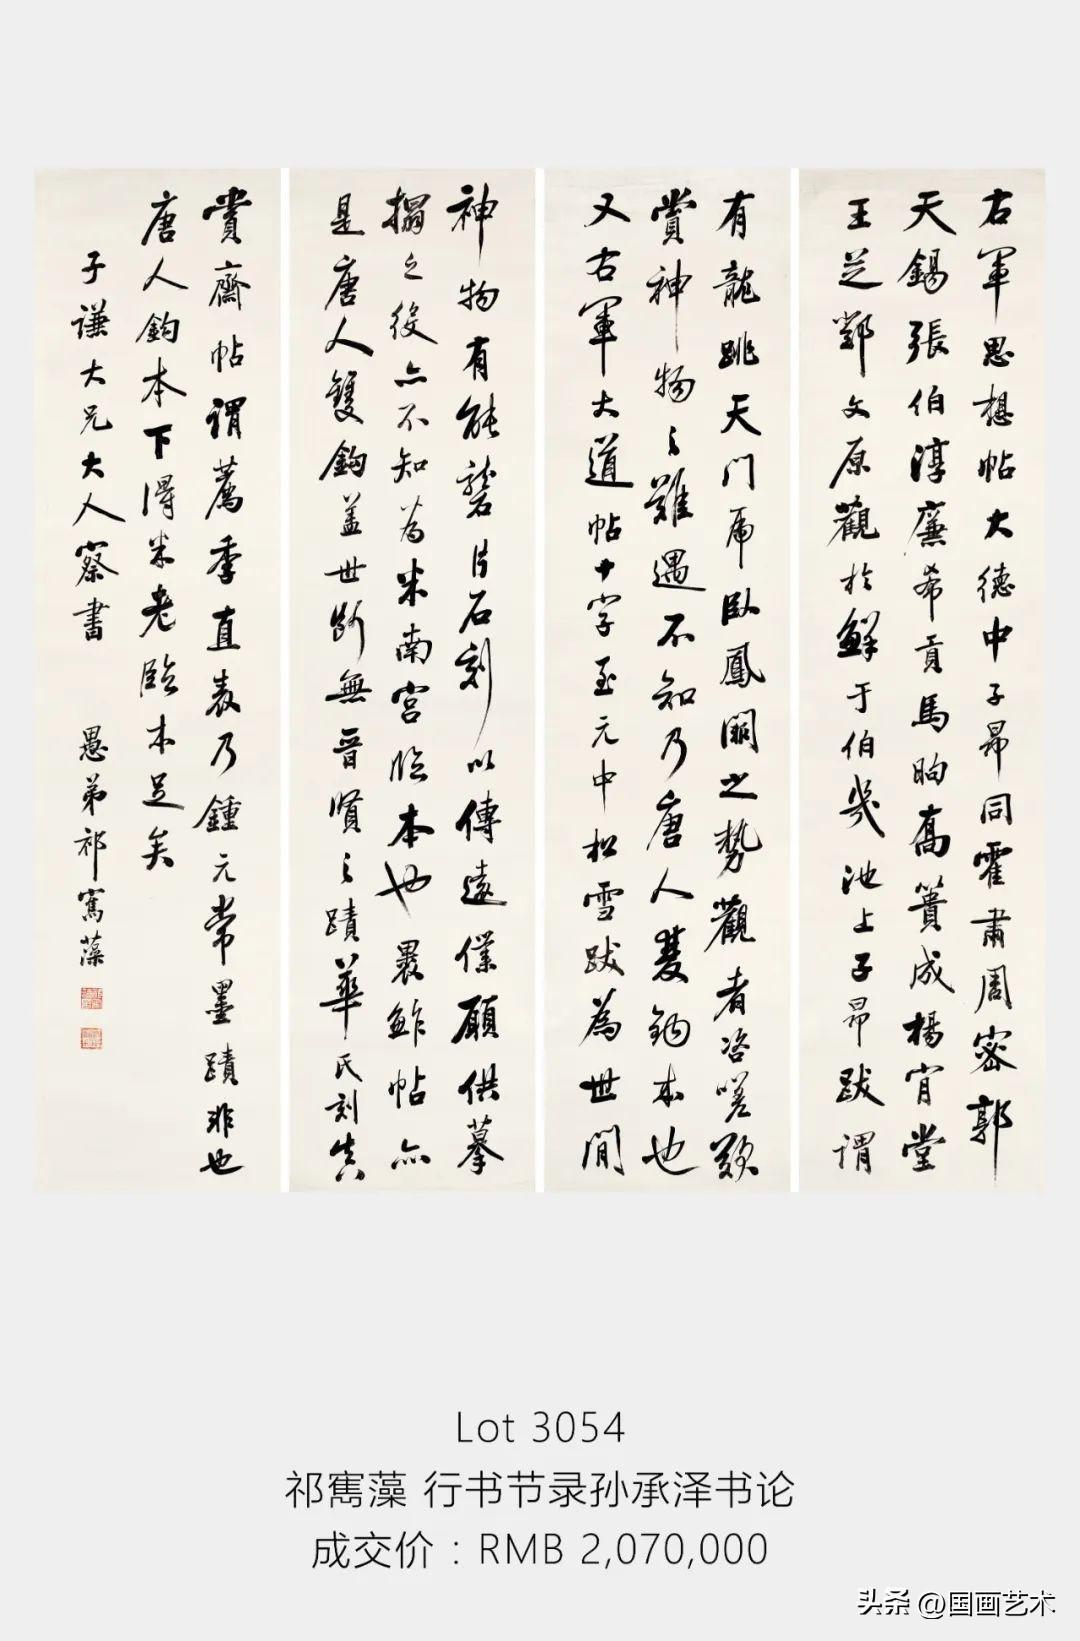 右軍思想帖大德中子昂同霍肅周密郭
天錫張伯淳廉希貢馬昫喬簣成楊肯堂
王芝鄧文原觀於鮮于伯幾池上子昂跋謂
有龍跳天門虎臥鳳闕之勢觀者咨嗟歎
賞神物之難遇不知乃唐人雙鉤本也
又右軍大道帖十字至元中松雪跋為世間
神物有能礱片石刻以傳遠僕願供摹
搨之役亦不知為米南宮臨本也裹鮓帖亦
是唐人雙鉤蓋世斷無晉賢之蹟華氏刻真
賞齋帖謂薦季直表乃鍾元常墨蹟非也
唐人鉤本下得米老臨本足矣
子謙大兄大人察書
愚弟祁寯藻
Lot 3054
祁寯藻 行书节录孙承泽书论
成交价：RMB 2,070,000
头条 @国画艺术